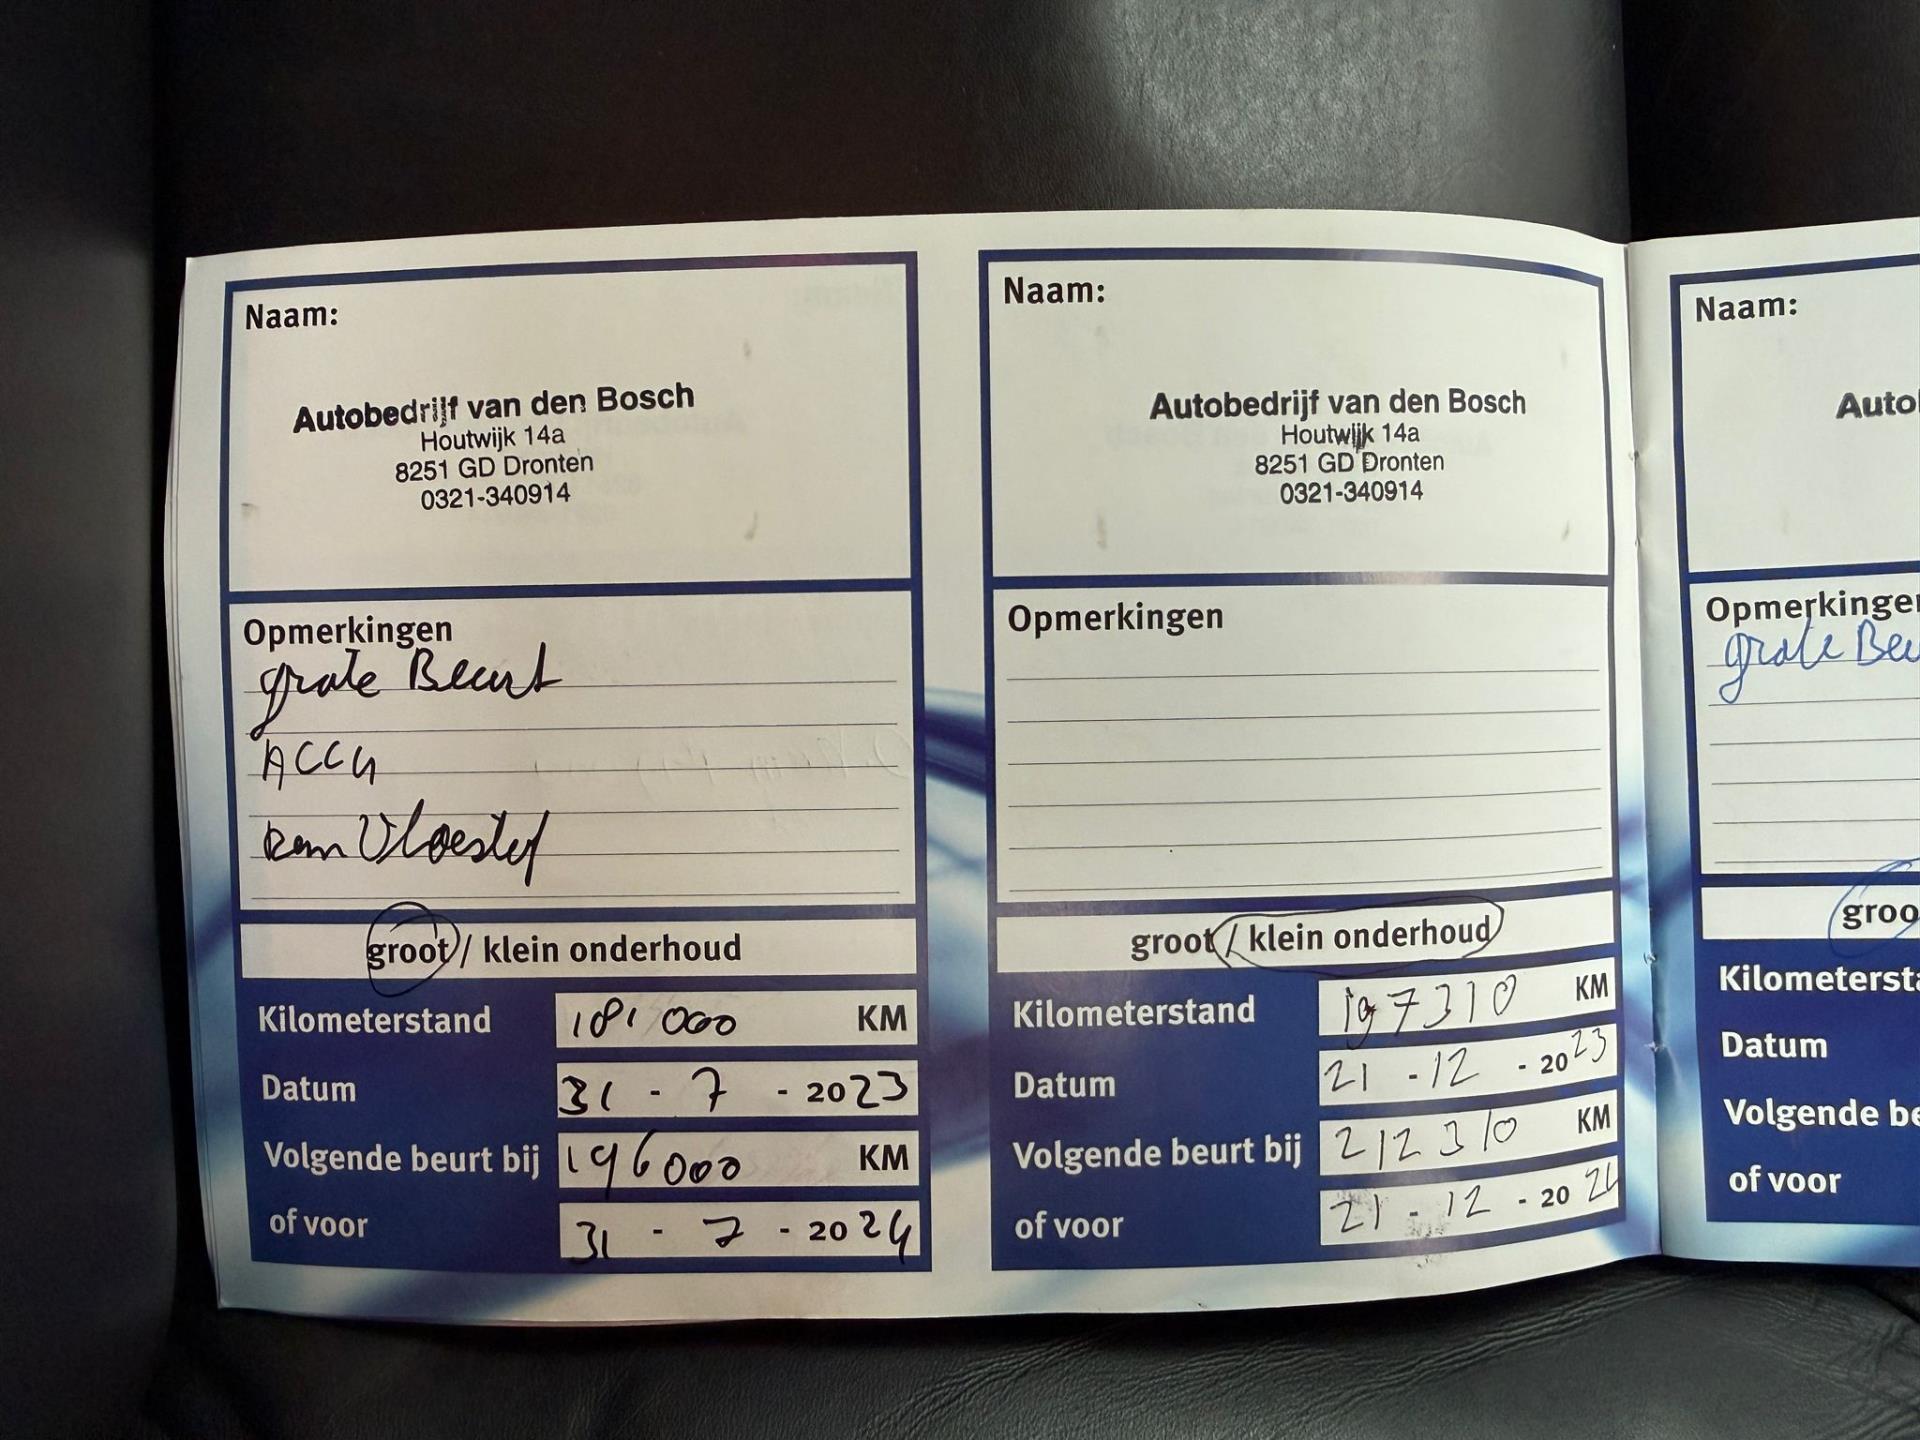 Naam:
Autobedrijf van den Bosch
Houtwijk 14a
8251 GD Dronten
0321-340914
Opmerkingen
grote Beurt
ACCU
Rem Vloeistof
groot / klein onderhoud
Kilometerstand 181000 KM
Datum 31 - 7 - 2023
Volgende beurt bij 196000 KM
of voor 31 - 7 - 2024
Naam:
Autobedrijf van den Bosch
Houtwijk 14a
8251 GD Dronten
0321-340914
Opmerkingen
groot / klein onderhoud
Kilometerstand 197310 KM
Datum 21 - 12 - 2023
Volgende beurt bij 212310 KM
of voor 21 - 12 - 2024
Naam:
Auto
Opmerkingen
grote Beu
groo
Kilometersta
Datum
Volgende be
of voor